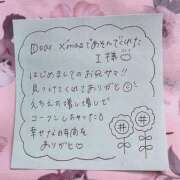 Dear X'masであそんでくれた
I様
はじめましてのお兄サマ!!
見つけてくれてありがと
えちえちな場し場しで
コーフンしちゃった
幸せなお時間を
ありがと♡